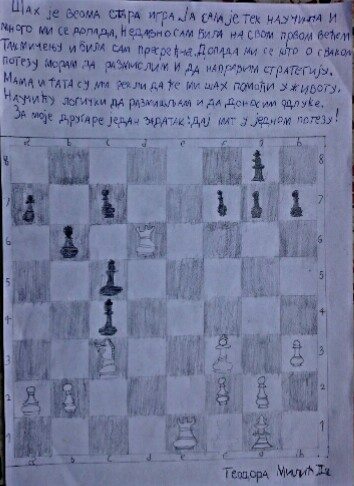 Шах је веома стара игра. Ја сам је тек научила и
много ми се допада. Недавно сам била на свом првом већем
такмичењу и била сам пресрећна. Допада ми се што о сваком
потезу морам да размислим и да направим стратегију.
Мама и тата су ми рекли да ће ми шах помоћи у животу.
Научићу логички да размишљам и да доносим одлуке.
За моје другаре један задатак: дај мат у једном потезу!
8 8
7 7
6 6
5 5
4 4
3 3
2 2
1 1
a b c d e f g h
Теодора Милић